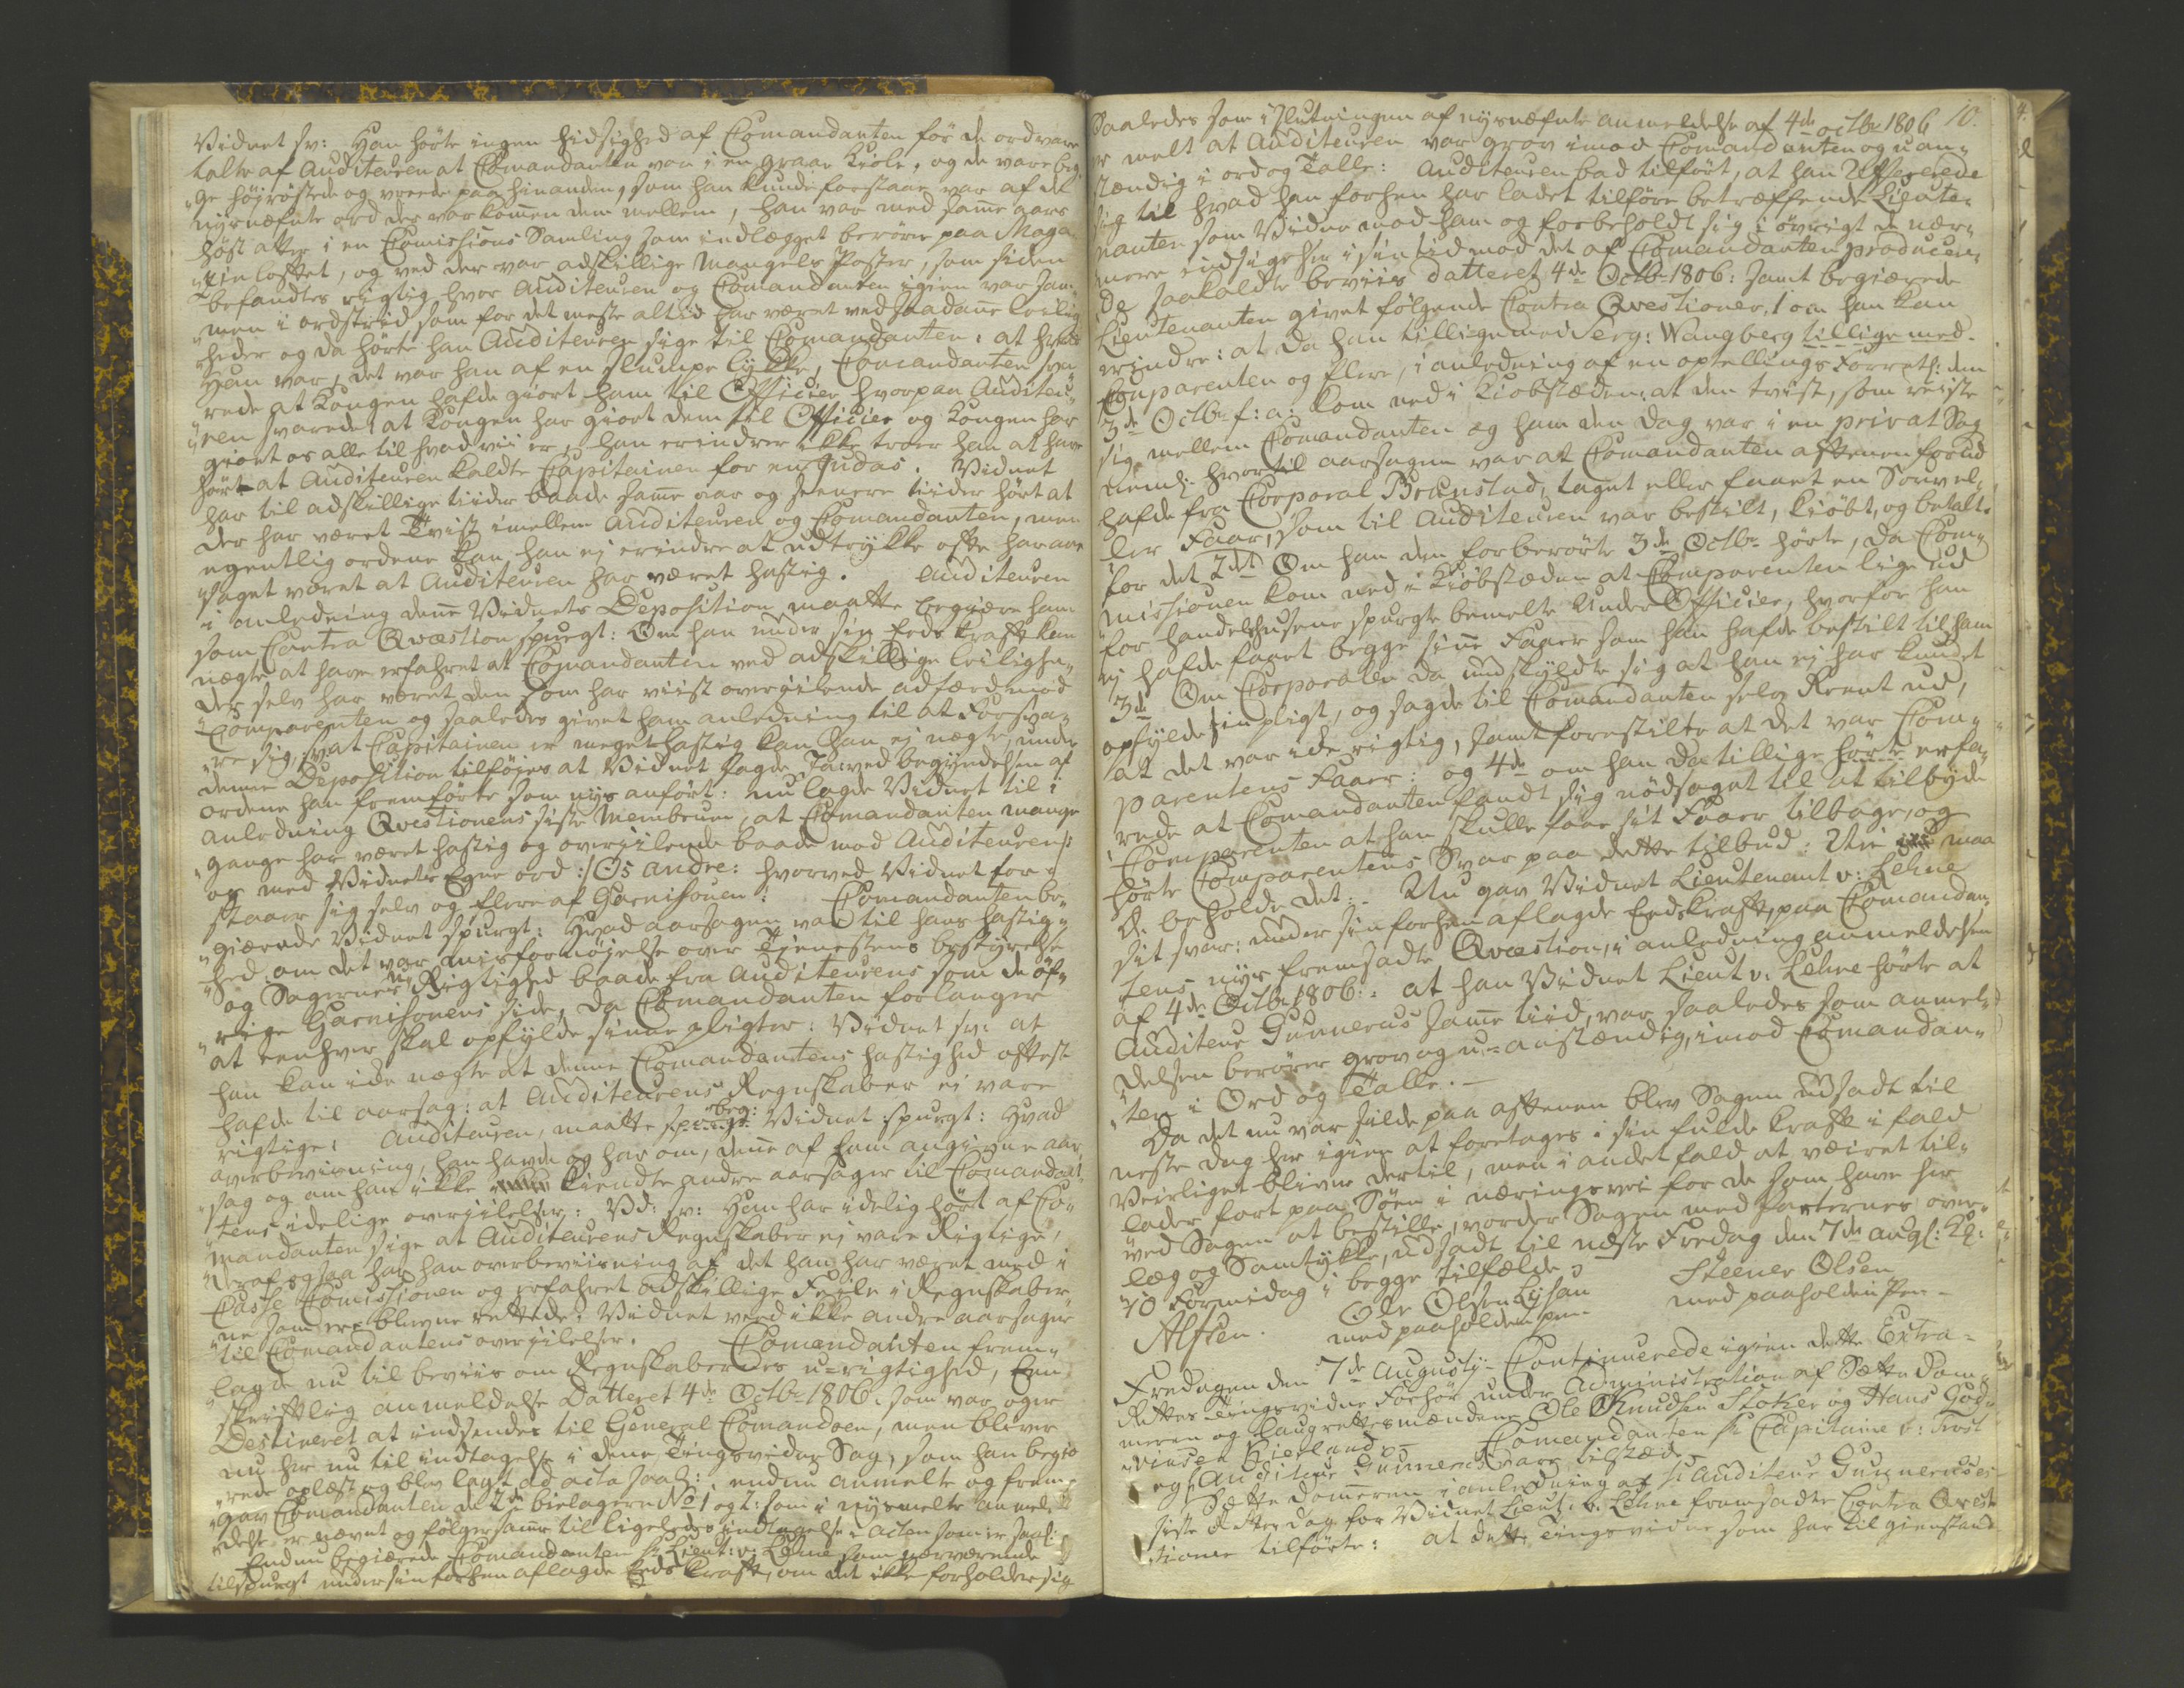 Vidnet sv: Han hørte ingen hidsighed af Comandanten før de ord vare
talte af Auditeuren at Comandanten var i en graae Kiole, og de vare beg-
"ge højrøstede og vreede paa hinanden, som han kunde forstaae var af det
nysnæfnte ord der var kommen dem mellem, han var med samme aars
høst atter i en Comissions Samling som indlægget berører paa Maga-
"zin loftet, og ved der var adskillige Mangels Poster, som siden
befandtes rigtig hvor Auditeuren og Comandanten igien var sam-
"men i ordstrid som for det meste altid har været ved saadanne leilig
"heder og da hørte han Auditeuren sige til Comandanten: at hvad
Han var, det var han af en slumpe lykke, Comandanten sva
rede at Kongen hafde giort ham til Officier hvorpaa Auditeu-
"ren svarede at Kongen har giort dem til Officier og Kongen har
giort os alle til hvad vii er, han erindrer ikke troer han at have
hørt at Auditeuren kaldte Capitainen for en Judas. Vidnet
har til adskillige tiider baade samme aar og seenere tiider hørt at
der har været Tvist imellem Auditeuren og Comandanten, men
egentlig ordene kan han ej erindre at udtrykke ofte har aar
"saget været at Auditeuren har været hastig. Auditeuren
i anledning denne Vidnets Deposition maatte begiære ham
som Contra Qvæstion spurgt: Om han under sin Eeds kraft kan
nægte at have erfahret at Comandanten ved adskillige leilighe-
der selv har været den som har viist overiilende adfærd mod
Comparenten og saaledes givet ham anledning til at Forsva-
"re sig, svar at Capitainen er meget hastig kan han ej nægte, under
denne Deposition tilføjes at Vidnet sagde Ja: ved begyndelsen af
ordene han fremførte som nys anført: nu lagde Vidnet til i
anledning Qvestionens siste Membrum, at Comandanten mange
"gange har været hastig og overiilende baade mod Auditeuren /:
og med Vidnets Egne ord :/ Os andre: hvorved Vidnet for-
staaer sig selv og flere af Garnisonen: Comandanten be-
"giærede Vidnet spurgt: Hvad aarsagen var til hans hastig-
"hed, om det var misfornøjelse over Tjenestens bestyrelse
og Sagernes u Rigtighed baade fra Auditeurens som de øf-
"rige Garnisonens side, da Comandanten forlanger
at eenhver skal opfylde sinne pligter: Vidnet sv: at
han kan icke nægte at denne Comandantens hastighed oftest
hafde til aarsag: at Auditeurens Regnskaber ei vare
rigtige: Auditeuren, maatte beg: Vidnet spurgt: Hvad
overbeviisning, han havde og har om, denne af ham angivne aar
"sag og om han ikke kiendte andre aarsager til Comandan-
"tens idelige overiilelser: Vd: sv: Han har idelig hørt af Co-
"mandanten sige at Auditeurens Regnskaber ej vare Rigtige,
deraf ogsaa har han overbeviisning af det han har været med i
Casse Comissionen og erfahret adskillige Feile i Regnskaber
"ne som ere blevne rettede; Vidnet veed ikke andre aarsager
til Comandantens overiilelser. Comandanten frem-
lagde nu til beviis om Regnskabernes u-rigtighed, Een
skriftlig anmeldelse Datteret 4de Octbr 1806: som var
Destineret at indsendes til General Comandoen, men bliver
nu her nu til indtagelse i denne Tingsvidne Sag, som han begiæ
"rede oplæst og blev lagt ad acta saal: endnu anmelte og frem
"gav Comandanten de 2de bielagene No 1 og 2: som i nysmelte anmel-
"delse er nævnt og følger samme til ligeledes indtagelse i acten som er saal:
Endnu begiærede Comandanten Hr Lieut: v: Lehne som nærværende
tilspurgt under sin forhen aflagde Eeds kraft, om det ikke forholder sig
10.
Saaledes som i Slutningen af nysnæfnte anmeldelse af 4de octbr 1806
er melt at Auditeuren var grov imod Comandanten og uan-
stændig i ord og Talle: Auditeuren bad tilført, at han
sig til hvad han forhen har ladet tilføre betræffende Lieute-
nanten som Vidne mod ham og forbeholdt sig i øvrigt de nær-
mere indsigelser i sin tid mod det af Comandanten producere
de saakaldte beviis datteret 4de Octbr 1806: samt begiærede
Lieutenanten givet følgende Contra Qvestioner, 1 om han kan
erindre: at da han tilligemed Serg: Wangberg tilligemed
Comparenten og flere, i anledning af en optellings Forrets: den
3de Octbr f: a: kom ned i Kiøbstæden: at den tvist, som reiste
sig mellem Comandanten og ham den dag var i en privat Sag
neml: hvortil aarsagen var at Comandanten aftenen forud
hafde fra Corporal Brunstad, taget eller faaet en Sou vel-
ler Faar, som til Auditeuren var bestilt, kiøbt, og betalt.
for det 2det Om han den forberørte 3de Octbr hørte, da Com-
missionen kom ned i Kiøbstæden at Comparenten lige ud
for handelshusene spurgte bemelte Under Officier, hvorfor han
ej hafde faaet begge sinne Faaer som han hafde bestilt til ham
3de Om Corporalen da undskyldte sig at han ej har kundet
opfylde sin pligt, og sagde til Comandanten selv Reent ud,
at det var icke rigtig, samt forestilte at det var Com-
parentens Faaer: og 4de om han da tillige hørte erfa-
rede at Comandanten fandt sig nødsaget til at tilbyde
Comparenten at han skulle faae sit Faaer tilbage, og
hørte Comparentens Svar paa dette tilbud: Nei maa
D: beholde det: - Nu gav Vidnet Lieutenant v: Lehne
sit svar: under sin forhen aflagde Eeds kraft, paa Comandan-
tens nys fremsadte Qvæstion, i anledning anmeldelsen
af 4de Octbr 1806: at han Vidnet Lieut v: Lehne hørte at
Auditeur Gunnerus samme tiid, var saaledes som anmel-
delsen berører grov og u-anstændig, imod Comandan-
"ten i Ord og Talle. -
Da det nu var silde paa aftenen blev Sagen udsadt til
neste dag her igien at foretages i sin fulde kraft i fald
Veirliget bliver dertil, men i andet fald at veiret til-
lader fart paa Søen i næringsvei for de som have her
ved Sagen at bestille, vorder Sagen med parternes over-
læg og Samtykke, udsadt til næste Fredag den 7de augs: Kl:
10 Formidag i begge tilfælde;
Alfsen. Ole Olsen Lysan Steener Olsen
med paaholden pen med paaholden Pen -
Fredagen den 7de Augusty - Continuerede igien dette Extra-
Rettes Tingsvidne Forhør under Administration af Sætte Dom-
meren og Laugrettesmændene Ole Knudsen Stoker og Hans Gud-
Comandanten Hr Capitaine v: Trost
og Auditeur Gunnerus vare tilstæde
Sætte Dommeren i anledning af Hr Auditeur Gunnerus es
siste Rettes dag for Vidnet Lieut: v. Lehne fremsadte Contra Qvest
tioner tilførte: at dette Tingsvidne som har til gienstand